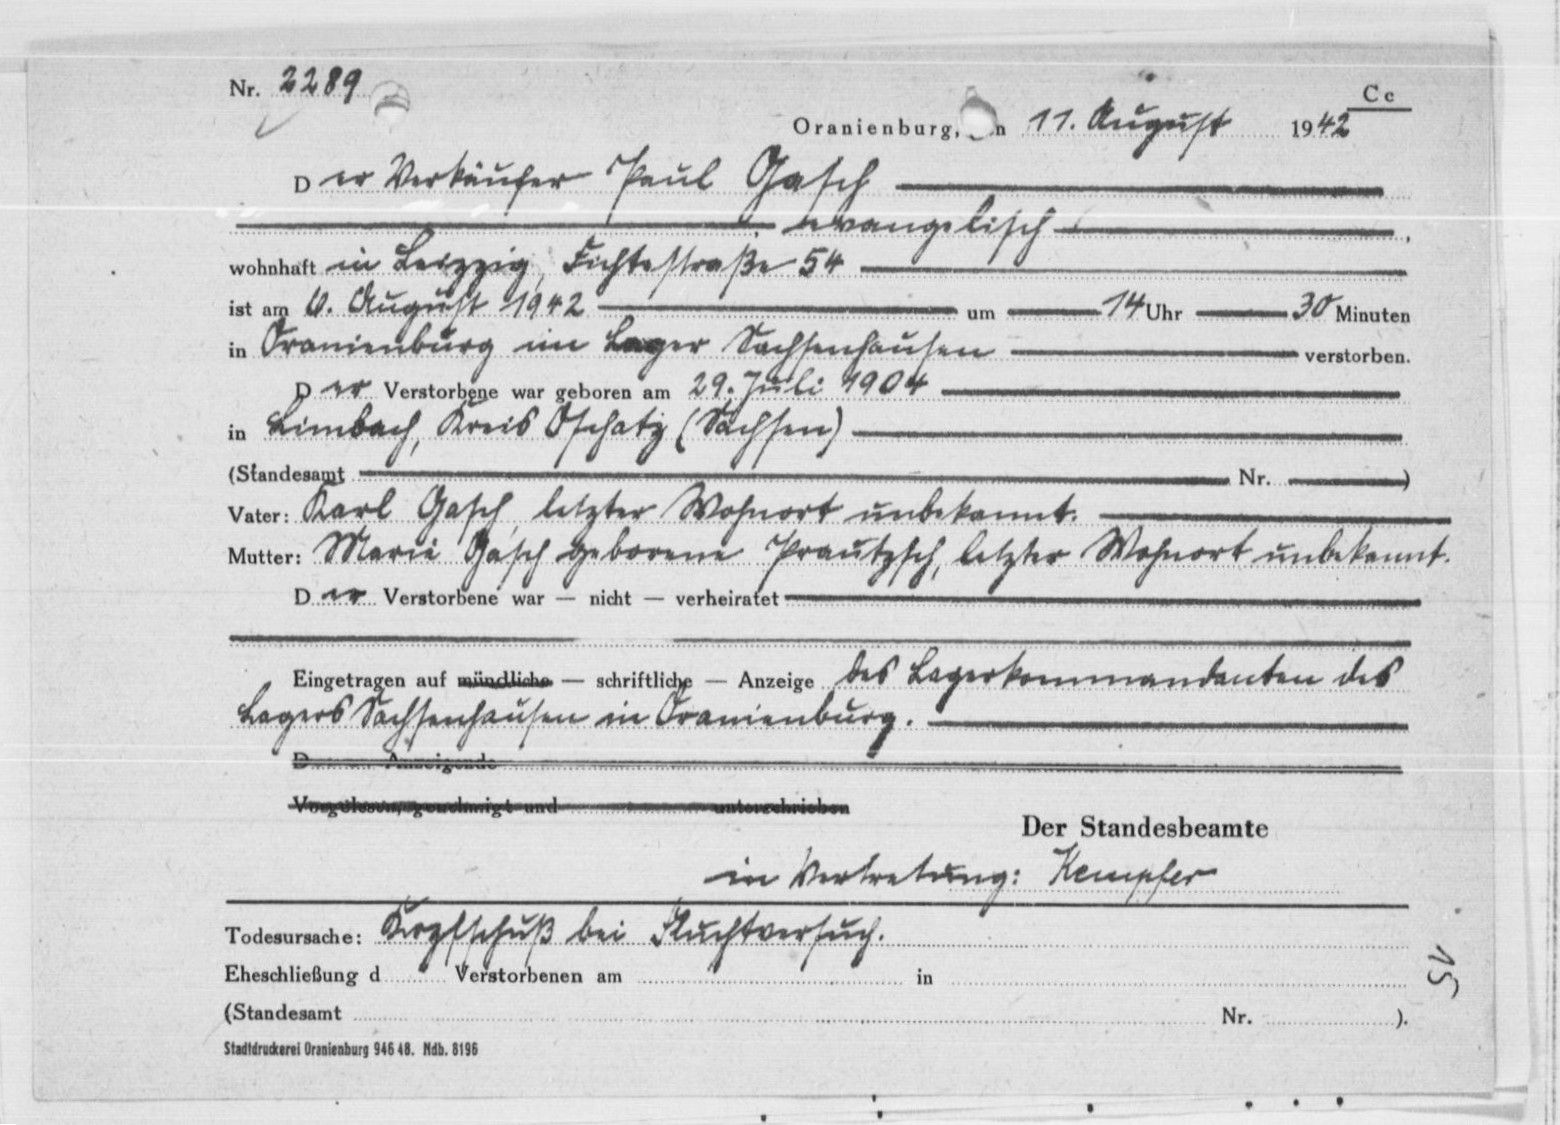 Nr. 2289
Cc
Oranienburg, den 11. August 1942
Der Verkäufer Paul Gasch
evangelisch,
wohnhaft in Leipzig, Fichtestraße 54
ist am 6. August 1942 um 14 Uhr 30 Minuten
in Oranienburg im Lager Sachsenhausen verstorben.
Der Verstorbene war geboren am 29. Juli 1904
in Limbach, Kreis Oschatz (Sachsen)
(Standesamt Nr. )
Vater: Karl Gasch, letzter Wohnort unbekannt.
Mutter: Marie Gasch geborene Prautzsch, letzter Wohnort unbekannt.
Der Verstorbene war — nicht — verheiratet
Eingetragen auf mündliche — schriftliche — Anzeige des Lagerkommandanten des
Lagers Sachsenhausen in Oranienburg.
D Anzeigende
Vorgelesen, genehmigt und unterschrieben
Der Standesbeamte
in Vertretung: Kempfer
Todesursache: Kopfschuß bei Fluchtversuch.
Eheschließung d Verstorbenen am in
(Standesamt Nr. ).
15
Stadtdruckerei Oranienburg 946 48. Ndb. 8196